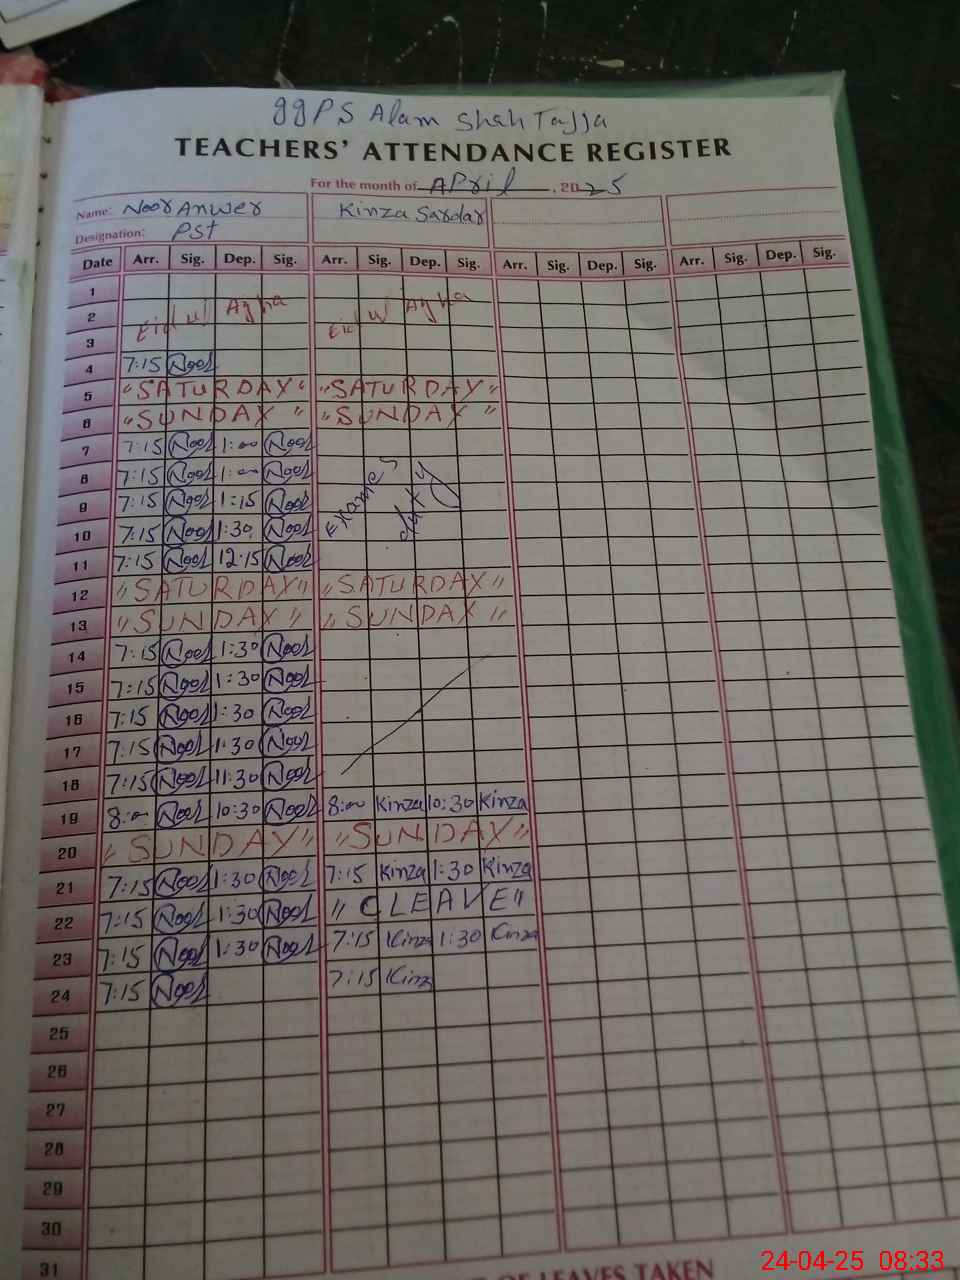 ggPS Alam Shah Tajja
TEACHERS' ATTENDANCE REGISTER
For the month of April, 2025
Name: Noor Anwer Kinza Sardar
Designation: PST
Date Arr. Sig. Dep. Sig. Arr. Sig. Dep. Sig. Arr. Sig. Dep. Sig. Arr. Sig. Dep. Sig.
1
2 Eid ul Azha Eid ul Azha
3
4 7:15 Noor
5 "SATURDAY" "SATURDAY"
6 "SUNDAY" "SUNDAY"
7 7:15 Noor 1:00 Noor
8 7:15 Noor 1:00 Noor
9 7:15 Noor 1:15 Noor Exames duty
10 7:15 Noor 1:30 Noor
11 7:15 Noor 12:15 Noor
12 "SATURDAY" "SATURDAY"
13 "SUNDAY" "SUNDAY"
14 7:15 Noor 1:30 Noor
15 7:15 Noor 1:30 Noor
16 7:15 Noor 1:30 Noor
17 7:15 Noor 1:30 Noor
18 7:15 Noor 11:30 Noor
19 8:00 Noor 10:30 Noor 8:00 Kinza 10:30 Kinza
20 "SUNDAY" "SUNDAY"
21 7:15 Noor 1:30 Noor 7:15 Kinza 1:30 Kinza
22 7:15 Noor 1:30 Noor "CLEAVE"
23 7:15 Noor 1:30 Noor 7:15 Kinza 1:30 Kinza
24 7:15 Noor 7:15 Kinz
25
26
27
28
29
30
31
OF LEAVES TAKEN
24-04-25 08:33